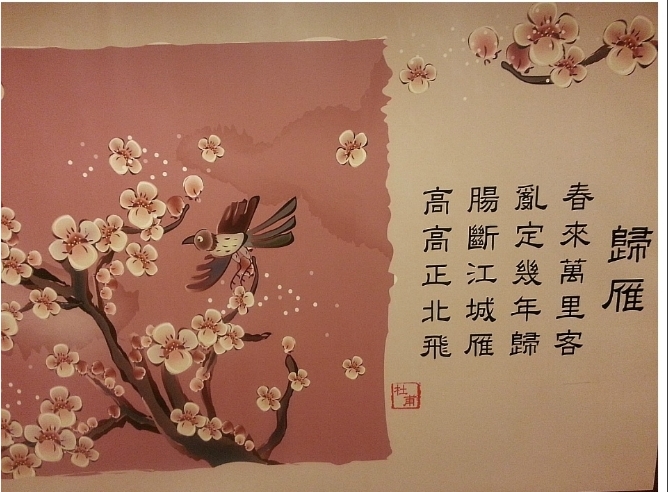 歸雁
春來萬里客
亂定幾年歸
腸斷江城雁
高高正北飛
杜甫